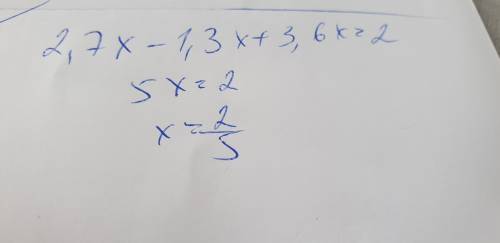 2,7x - 1,3x + 3,6x = 2
5x = 2
x = 2/5